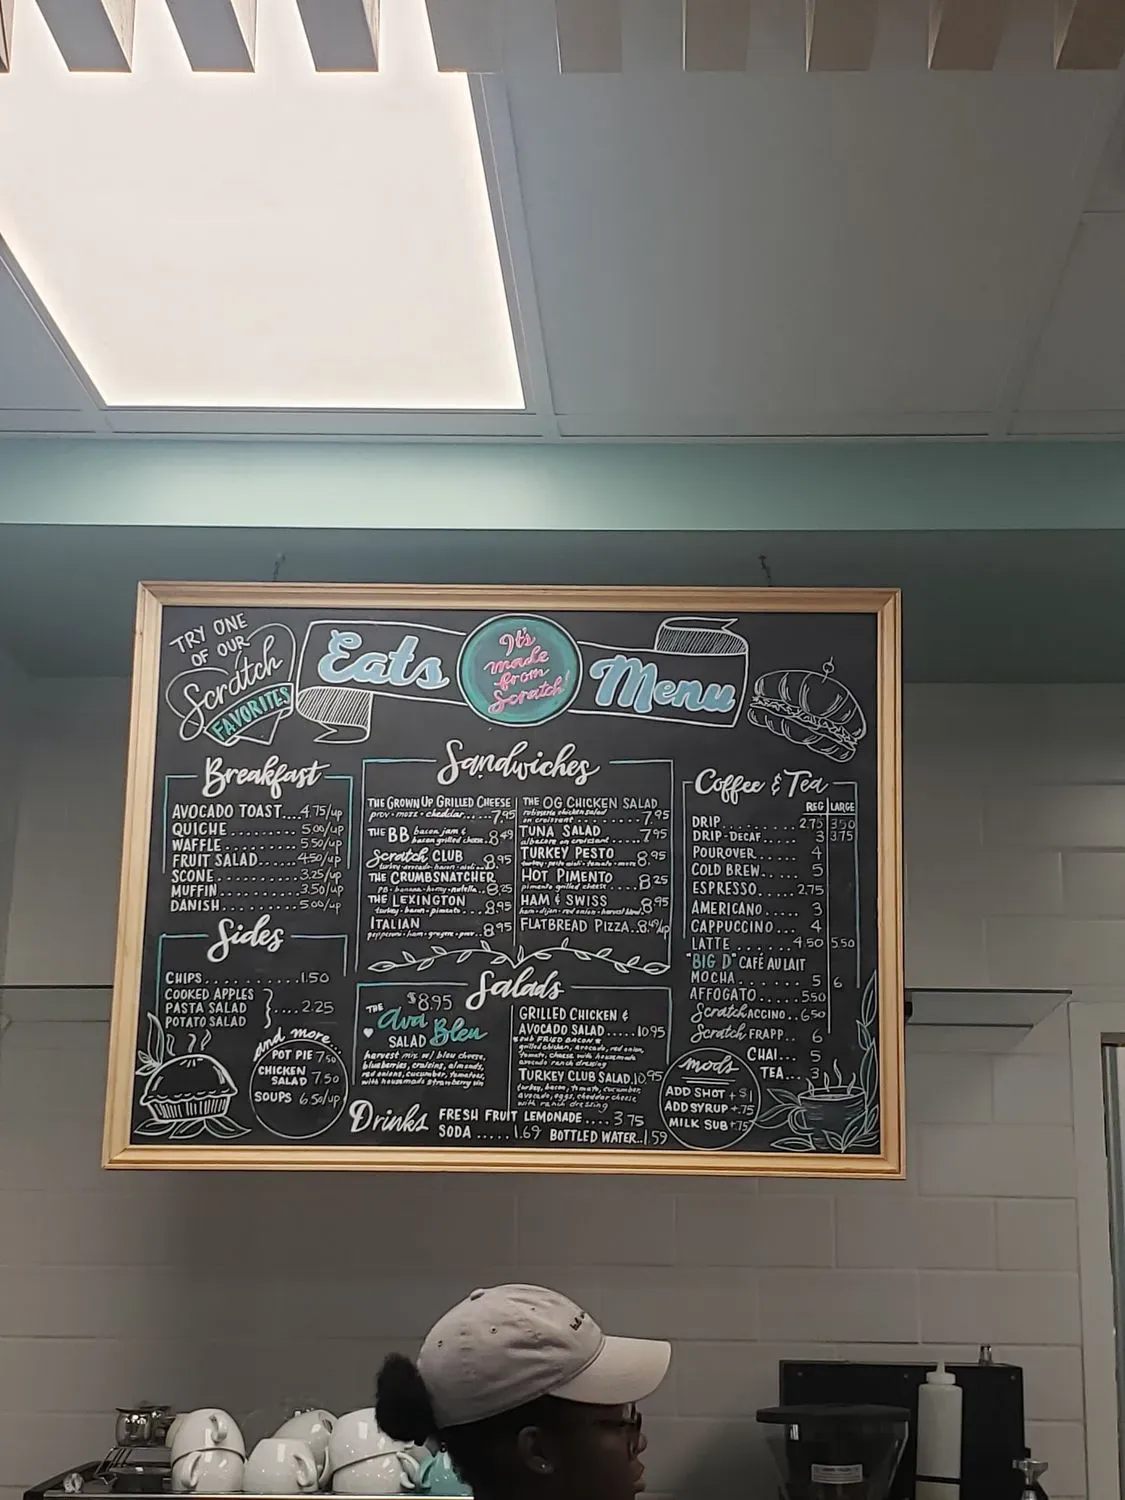 TRY ONE
OF OUR
Scratch
FAVORITES
Eats
It's
made
from
Scratch!
Menu
Breakfast
AVOCADO TOAST....4.75/up
QUICHE.........5.00/up
WAFFLE.........5.50/up
FRUIT SALAD.....4.50/up
SCONE..........3.25/up
MUFFIN.........3.50/up
DANISH.........5.00/up
Sides
CHIPS............1.50
COOKED APPLES
PASTA SALAD }....2.25
POTATO SALAD
and more...
POT PIE 7.50
CHICKEN
SALAD 7.50
SOUPS 6.50/up
Sandwiches
THE GROWN UP GRILLED CHEESE
prov · mozz · cheddar.....7.95
THE BB bacon jam &
bacon grilled cheese...8.49
Scratch CLUB 8.95
THE CRUMBSNATCHER
PB · banana · honey · nutella...8.25
THE LEXINGTON
turkey · bacon · pimento....8.95
ITALIAN 8.95
THE OG CHICKEN SALAD
rotisserie chicken salad
on croissant......7.95
TUNA SALAD 7.95
albacore on croissant
TURKEY PESTO 8.95
HOT PIMENTO 8.25
pimento grilled cheese
HAM & SWISS 8.95
FLATBREAD PIZZA..8.49/up
Salads
$8.95
THE Ava Bleu
SALAD
harvest mix w/ bleu cheese,
blueberries, craizins, almonds,
red onions, cucumber, tomatoes,
with housemade strawberry vin
GRILLED CHICKEN &
AVOCADO SALAD.....10.95
*SUB FRIED BACON*
grilled chicken, avocado, red onion,
tomato, cheese with housemade
avocado ranch dressing
TURKEY CLUB SALAD.10.95
turkey, bacon, tomato, cucumber,
avocado, eggs, cheddar cheese
with ranch dressing
Drinks
FRESH FRUIT LEMONADE....3.75
SODA.....1.69 BOTTLED WATER..1.59
Coffee & Tea
REG LARGE
DRIP.........2.75 3.50
DRIP-DECAF....3 3.75
POUROVER.....4
COLD BREW....5
ESPRESSO.....2.75
AMERICANO.....3
CAPPUCCINO....4
LATTE........4.50 5.50
"BIG D" CAFÉ AU LAIT
MOCHA........5 6
AFFOGATO.....5.50
ScratchACCINO..6.50
Scratch FRAPP.. 6
CHAI... 5
TEA... 3
mods
ADD SHOT + $1
ADD SYRUP +.75
MILK SUB +.75